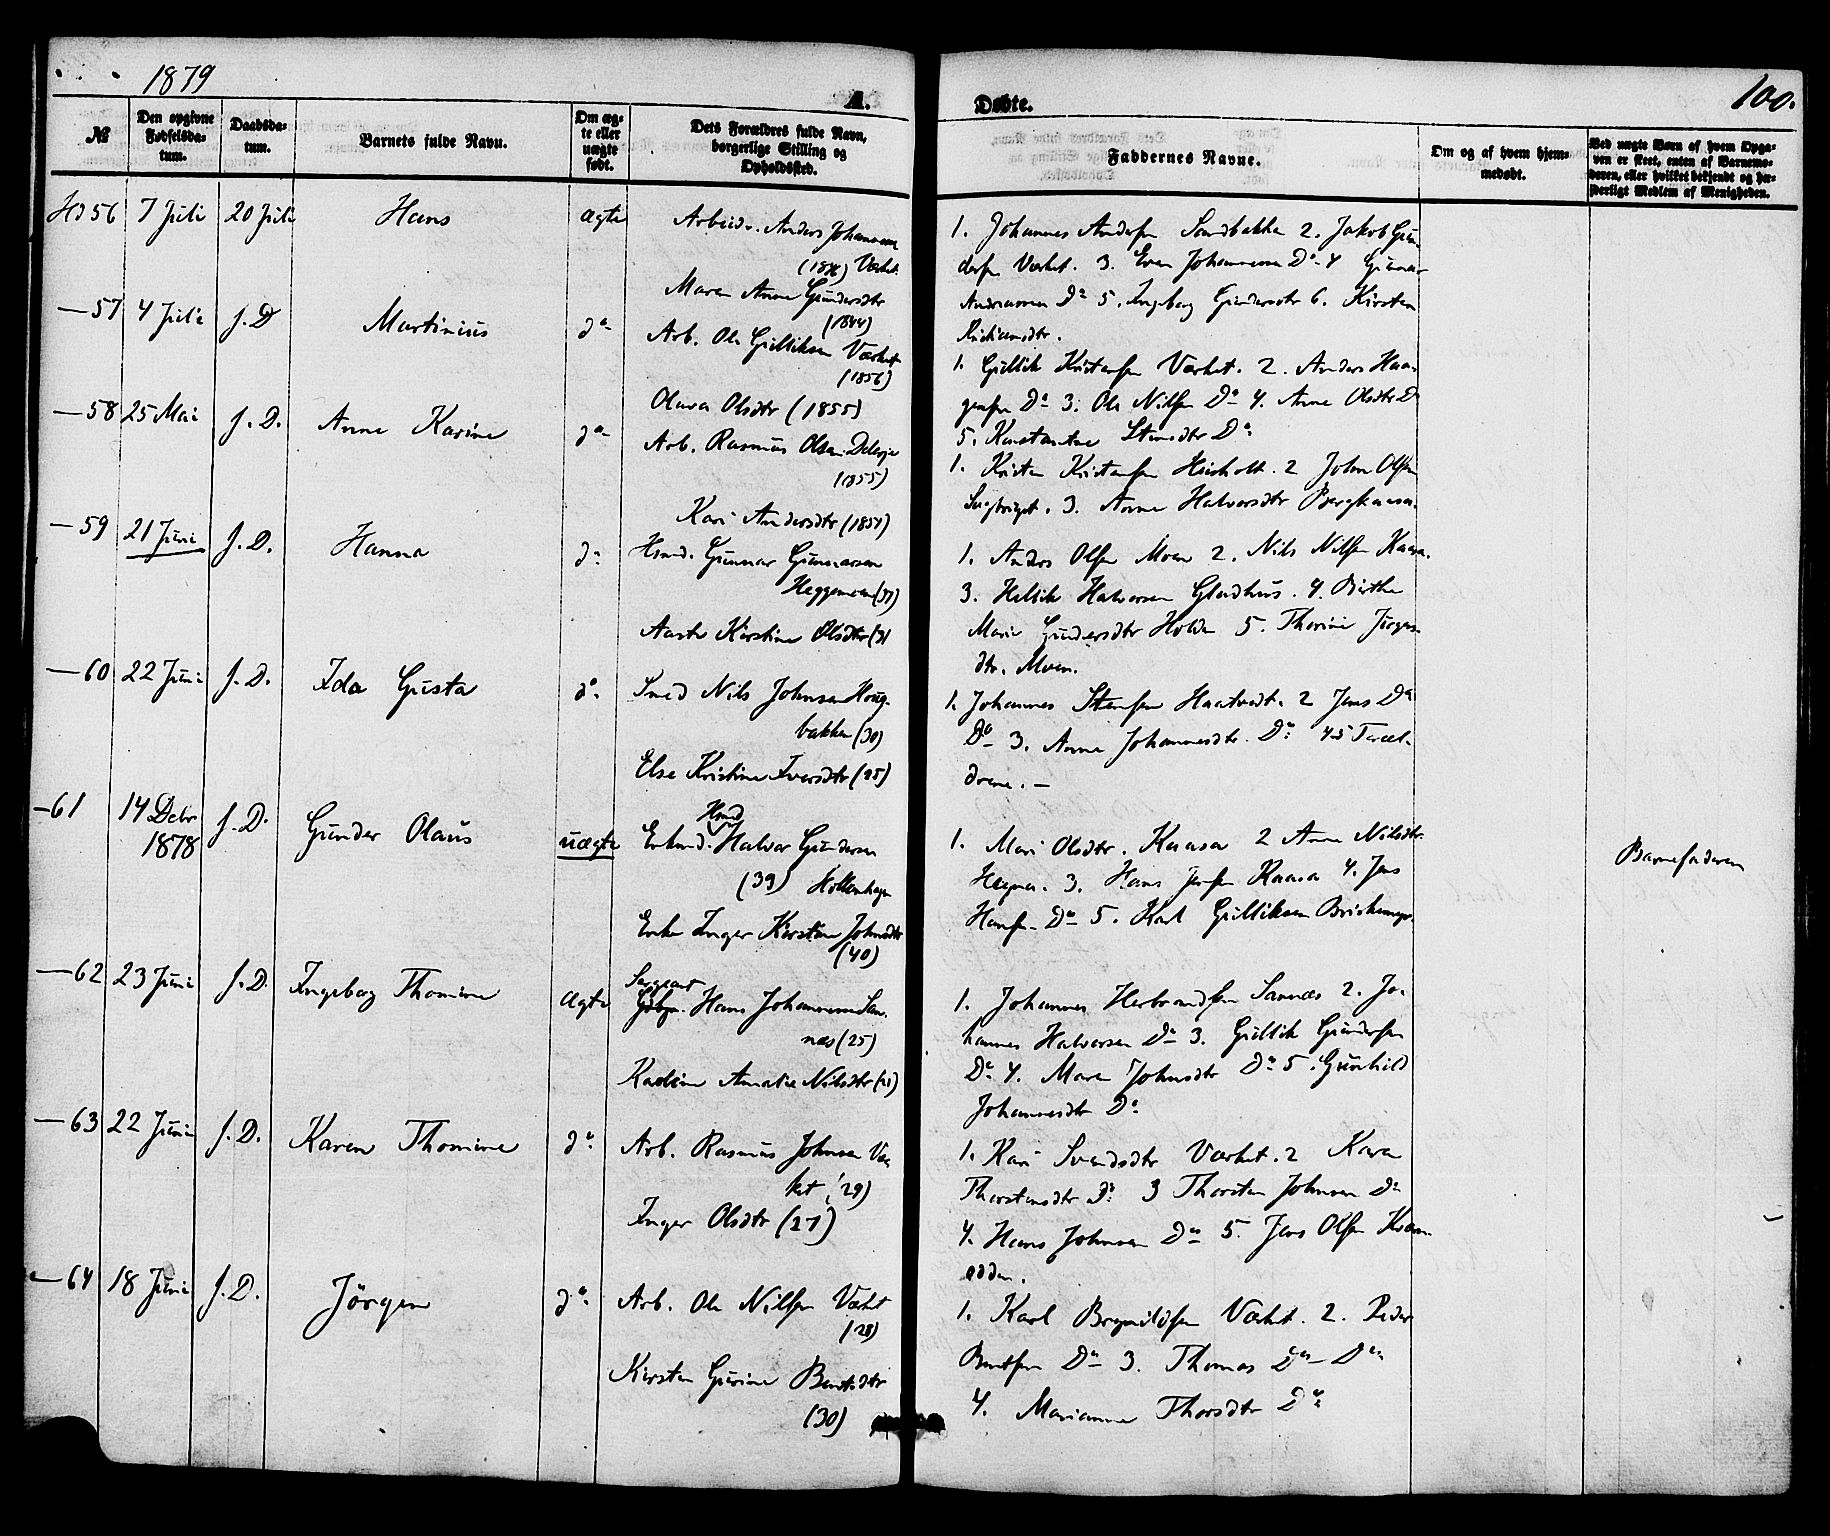 1879
A.
Døbte.
100.
№
Den opgivne Fødselsdatum.
Daabsdatum.
Barnets fulde Navn.
Om ægte eller uægte født.
Dets Forældres fulde Navn, borgerlige Stilling og Opholdssted.
Faddernes Navne.
Om og af hvem hjemmedøbt.
Ved uægte Børn af hvem Opgaven er skeet, enten af Barnemoderen, eller hvilket bekjendt og hæderligt Medlem af Menigheden.
56 7 Juli 20 Juli Hans ægte Arbeider. Anders Johannesen
(1836) Værket.
Maren Anne Gundersdtr
(1844)
1. Johannes Andersen Sandbakken 2. Jakob Gun-
dersen Værket. 3. Even Johannesen Do 4 Gunnar
Andreassen Do 5. Ingeborg Gundersdtr 6. Kirsten
Kristiansdtr.
57 4 Juli s. D Martinius do
Arb. Ole Gulliksen Værket
(1856)
Olava Olsdtr (1855)
1. Gullik Kristensen Værket. 2. Anders Haa-
gensen Do 3. Ole Nilsen Do 4. Anne Olsdtr Do
5. Konstantse Stensdtr Do
58 25 Mai s. D. Anne Karine do
Arb. Rasmus Olsen
(1855)
Kari Andersdtr (1851)
1. Kristen Kristensen 2 John Olsen
3. Anne Halvorsdtr
59 21 Juni s. D. Hanna do
Hsmd. Gunnar Gunnarsen
Heggemoen (37)
Aaste Kirstine Olsdtr (31
1. Anders Olsen Moen 2. Nils Nilsen Kaasa.
3. Hellik Halvorsen Gladhus. 4. Birthe
Marie Gundersdtr Holden 5. Thorine Jörgens-
dtr. Moen.
60 22 Juni s. D. Ida Gusta do
Smed Nils Johnsen Houg-
bakken (30)
Else Kristine Iversdtr (25)
1. Johannes Stensen Haatvedt. 2 Jens Do
Do 3. Anne Johannesdtr. Do 4 5 Foræl-
drene. —
61 14 Debr
1878 s. D. Gunder Olaus uægte
Hsmd
Enkmd. Halvor Gundersen
(39) Holtenhagen
Enke Inger Kirstine Johnsdtr
(40)
1. Mari Olsdtr. Kaasa 2 Anne Nilsdtr.
3. Hans Jensen Kaasa 4. Jens
Hansen Do 5. Karl Gulliksen
Barnefaderen
62 23 Juni s. D. Ingeborg Thomine ægte
Sergeant
Hans Johannesen San-
næs (25)
Karoline Amalie Nilsdtr (21)
1. Johannes Herbrandsen Sannæs 2. Jo-
hannes Halvorsen Do 3. Gullik Gundersen
Do 4. Maren Johnsdtr Do 5. Gunhild
Johannesdtr Do
63 22 Juni s. D. Karen Thomine do
Arb. Rasmus Johnsen Vær-
ket (29)
Inger Olsdtr (27)
1. Kari Svendsdtr Værket. 2 Karen
Thorstensdtr Do 3 Thorsten Johnsen Do
4. Hans Johnsen Do 5. Jens Olsen Kaasa-
odden.
64 18 Juni s. D. Jörgen do
Arb. Ole Nilsen Værket
(28)
Kirsten Gurine Bentsdtr
(30)
1. Karl Brynildsen Værket. 2. Peder
Bentsen Do 3. Thomas Do Do
4. Marianne Thorsdtr Do